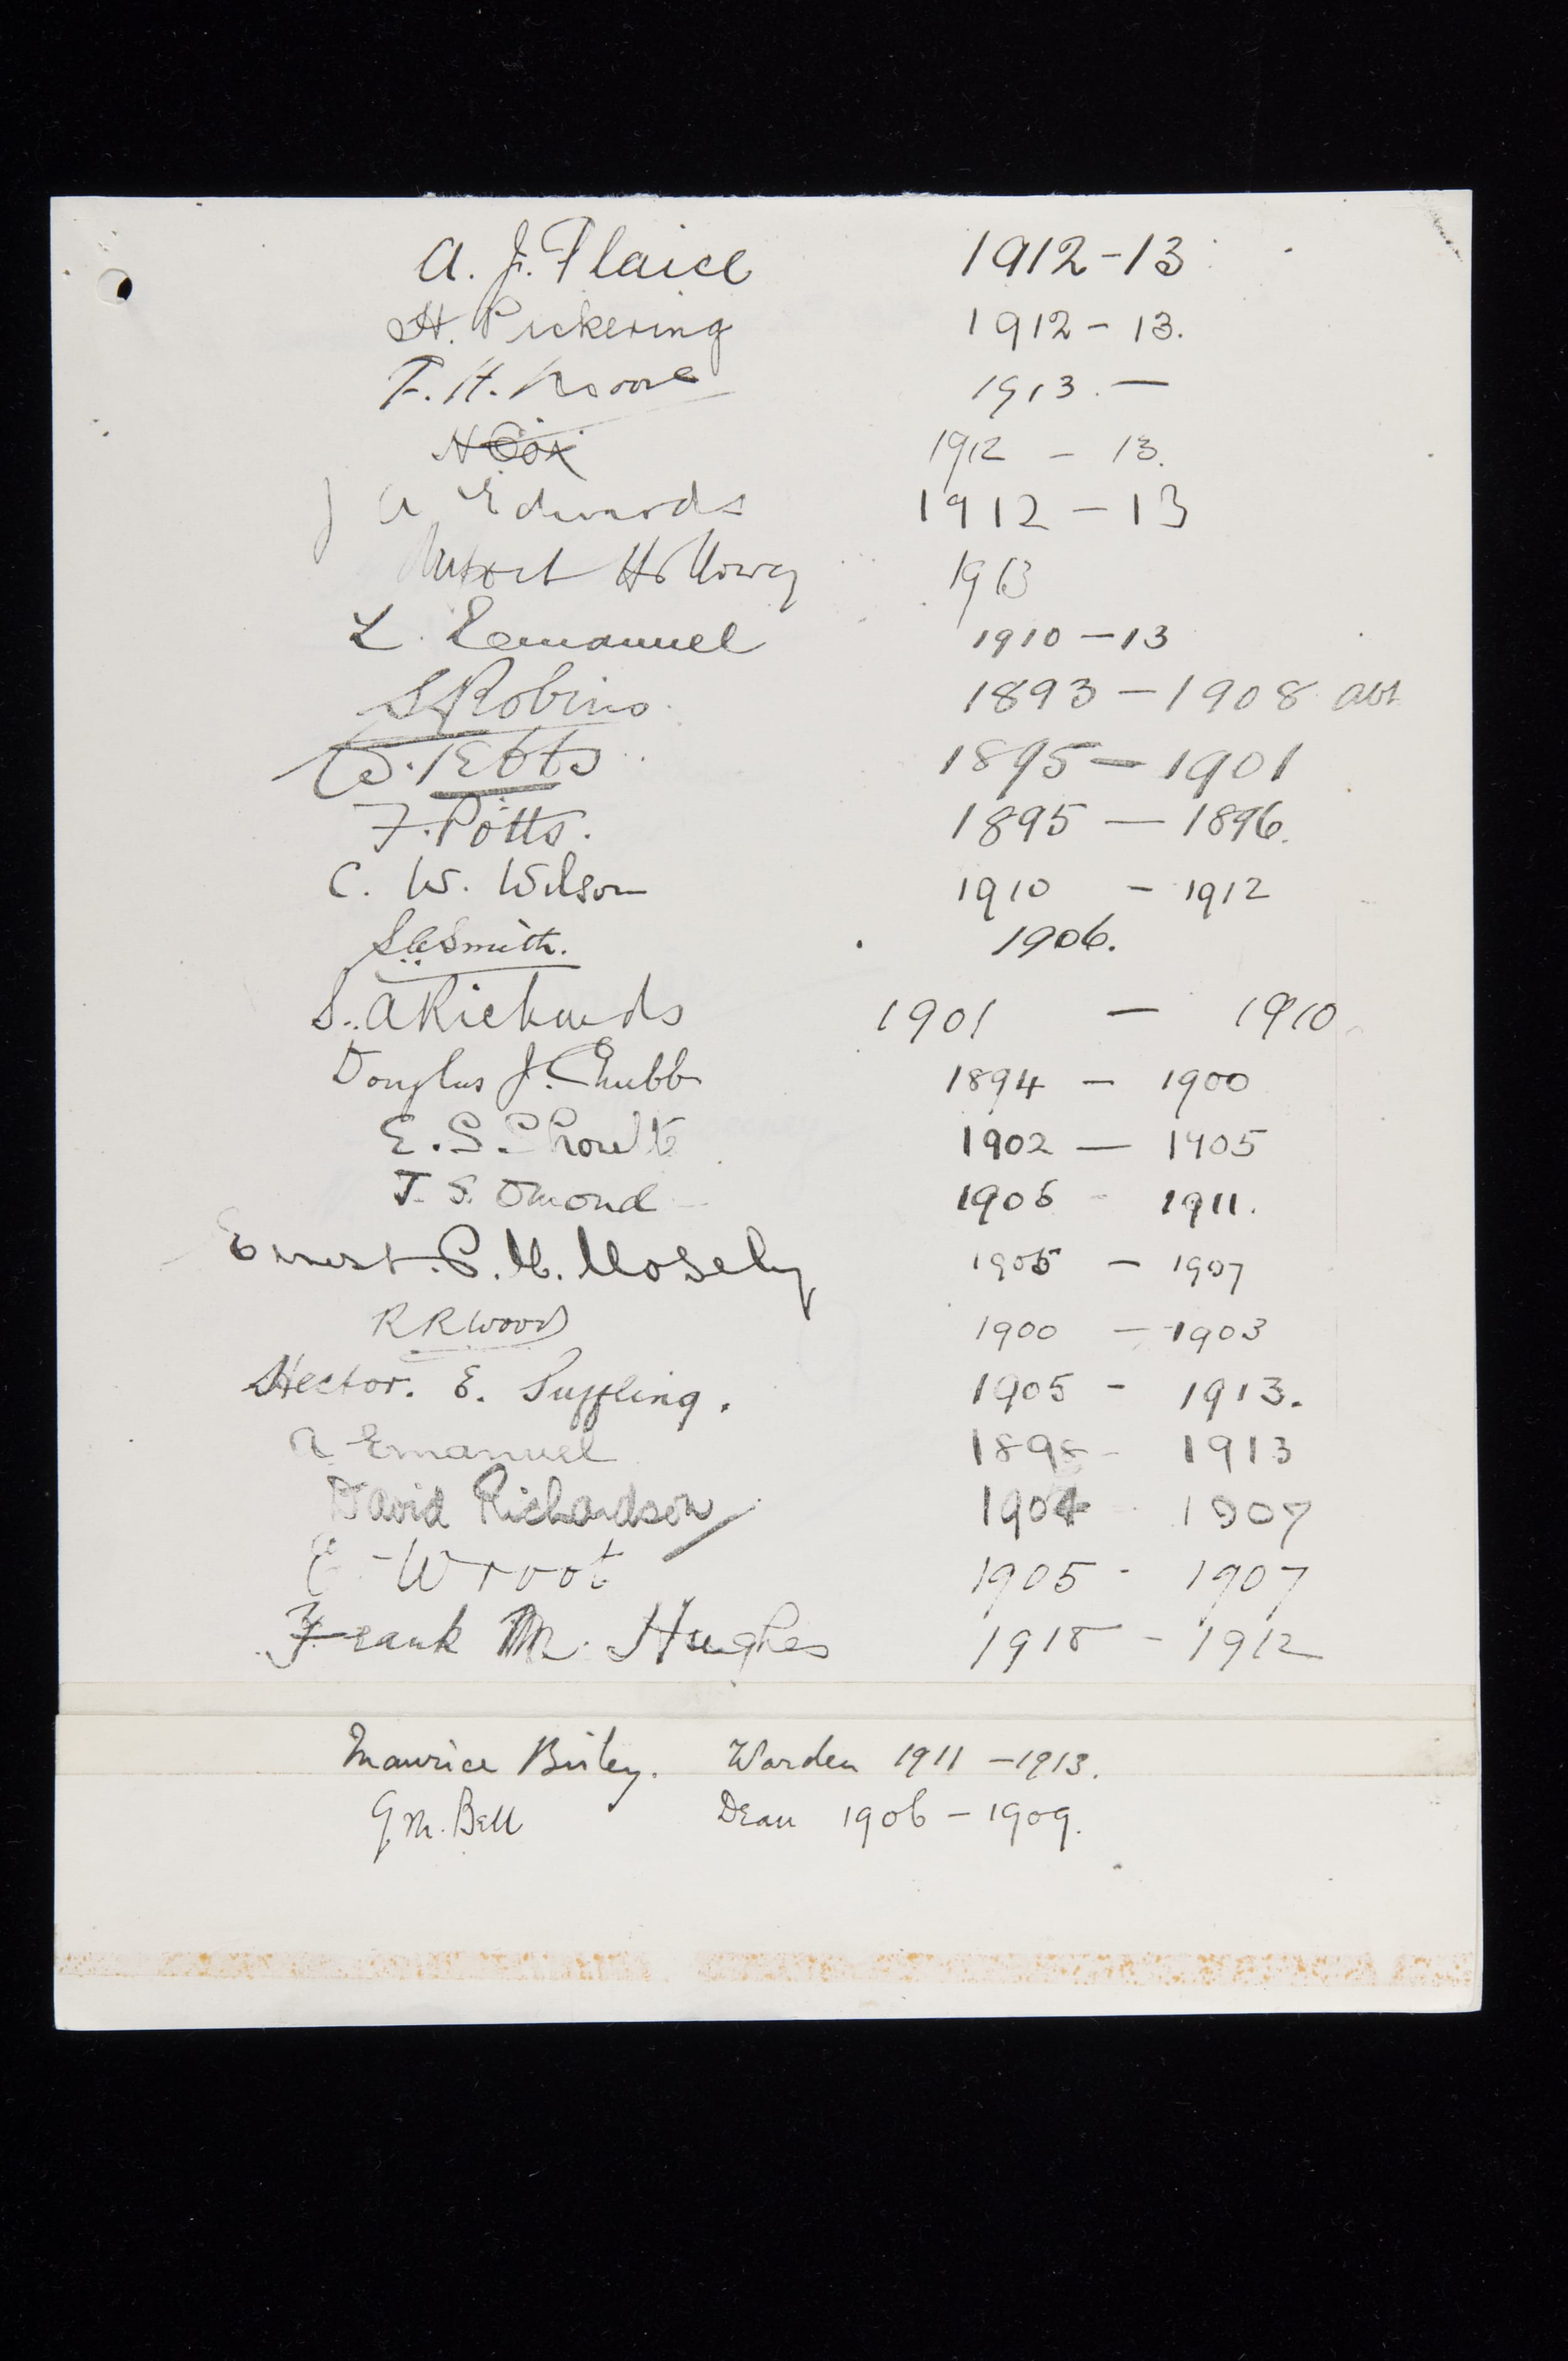 A. J. Plaice 1912-13
H. Pickering 1912 - 13.
F. H. Moore 1913. —
N Cox 1912 - 13.
J A Edwards 1912 - 13
Holloway 1913
L. Emanuel 1910 - 13
S Robins 1893 - 1908 abt
W. Ebbs 1895 — 1901
F. Potts. 1895 — 1896.
C. W. Wilson 1910 - 1912
Smith. 1906.
S. A Richards 1901 — 1910
Douglas J. Chubb 1894 - 1900
E. S. 1902 — 1905
T. S. Omond 1905 - 1911.
Ernest. P. M. Mosely 1905 - 1907
R R Wood 1900 - 1903
Hector. E. Suffling. 1905 - 1913.
Emanuel 1898 - 1913
David Richardson 1904 - 1907
E Wroot 1905 - 1907
Frank M. Hughes - 1912
Maurice Birley. Warden 1911 - 1913.
G. M. Bell Dean 1906 - 1909.